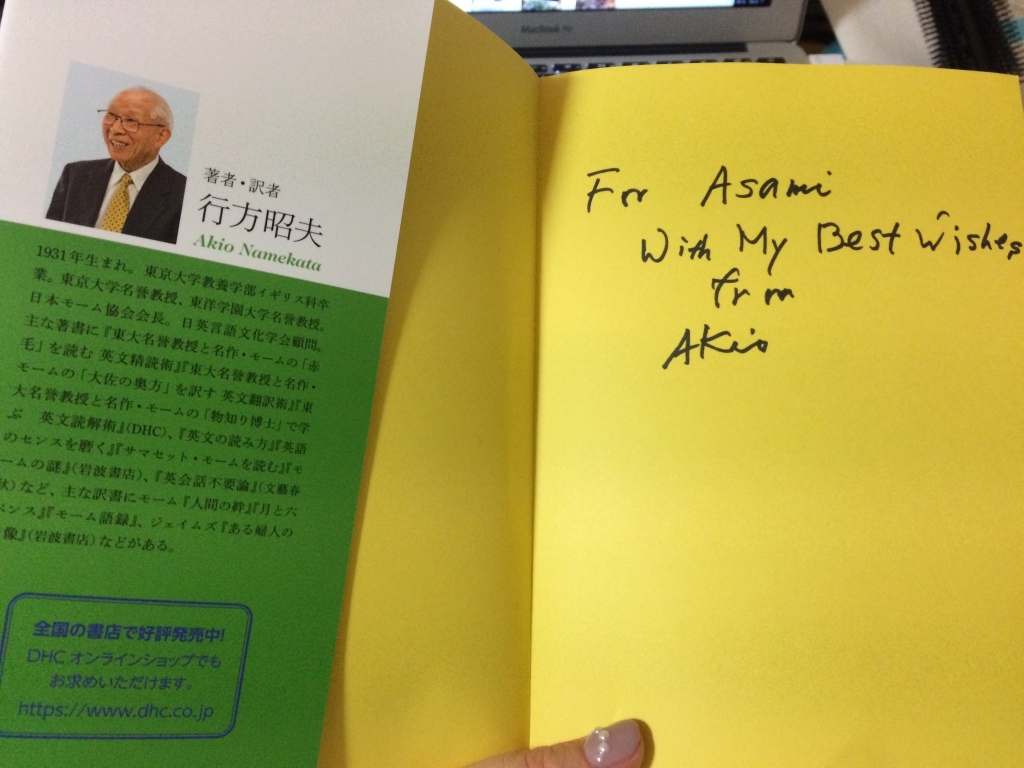 MacBook Air
著者・訳者
行方昭夫
Akio Namekata
1931年生まれ。東京大学教養学部イギリス科卒
業。東京大学名誉教授、東洋学園大学名誉教授。
日本モーム協会会長。日英言語文化学会顧問。
主な著書に『東大名誉教授と名作・モームの「赤
毛」を読む 英文精読術』『東大名誉教授と名作・
モームの「大佐の奥方」を訳す 英文翻訳術』『東
大名誉教授と名作・モームの「物知り博士」で学
ぶ 英文読解術』(DHC)、『英文の読み方』『英語
のセンスを磨く』『サマセット・モームを読む』『モ
ームの謎』(岩波書店)、『英会話不要論』(文藝春
秋)など、主な訳書にモーム『人間の絆』『月と六
ペンス』『モーム語録』、ジェイムズ『ある婦人の
像』(岩波書店)などがある。
全国の書店で好評発売中!
DHC オンラインショップでも
お求めいただけます。
https://www.dhc.co.jp
For Asami
With My Best Wishes
from
Akio